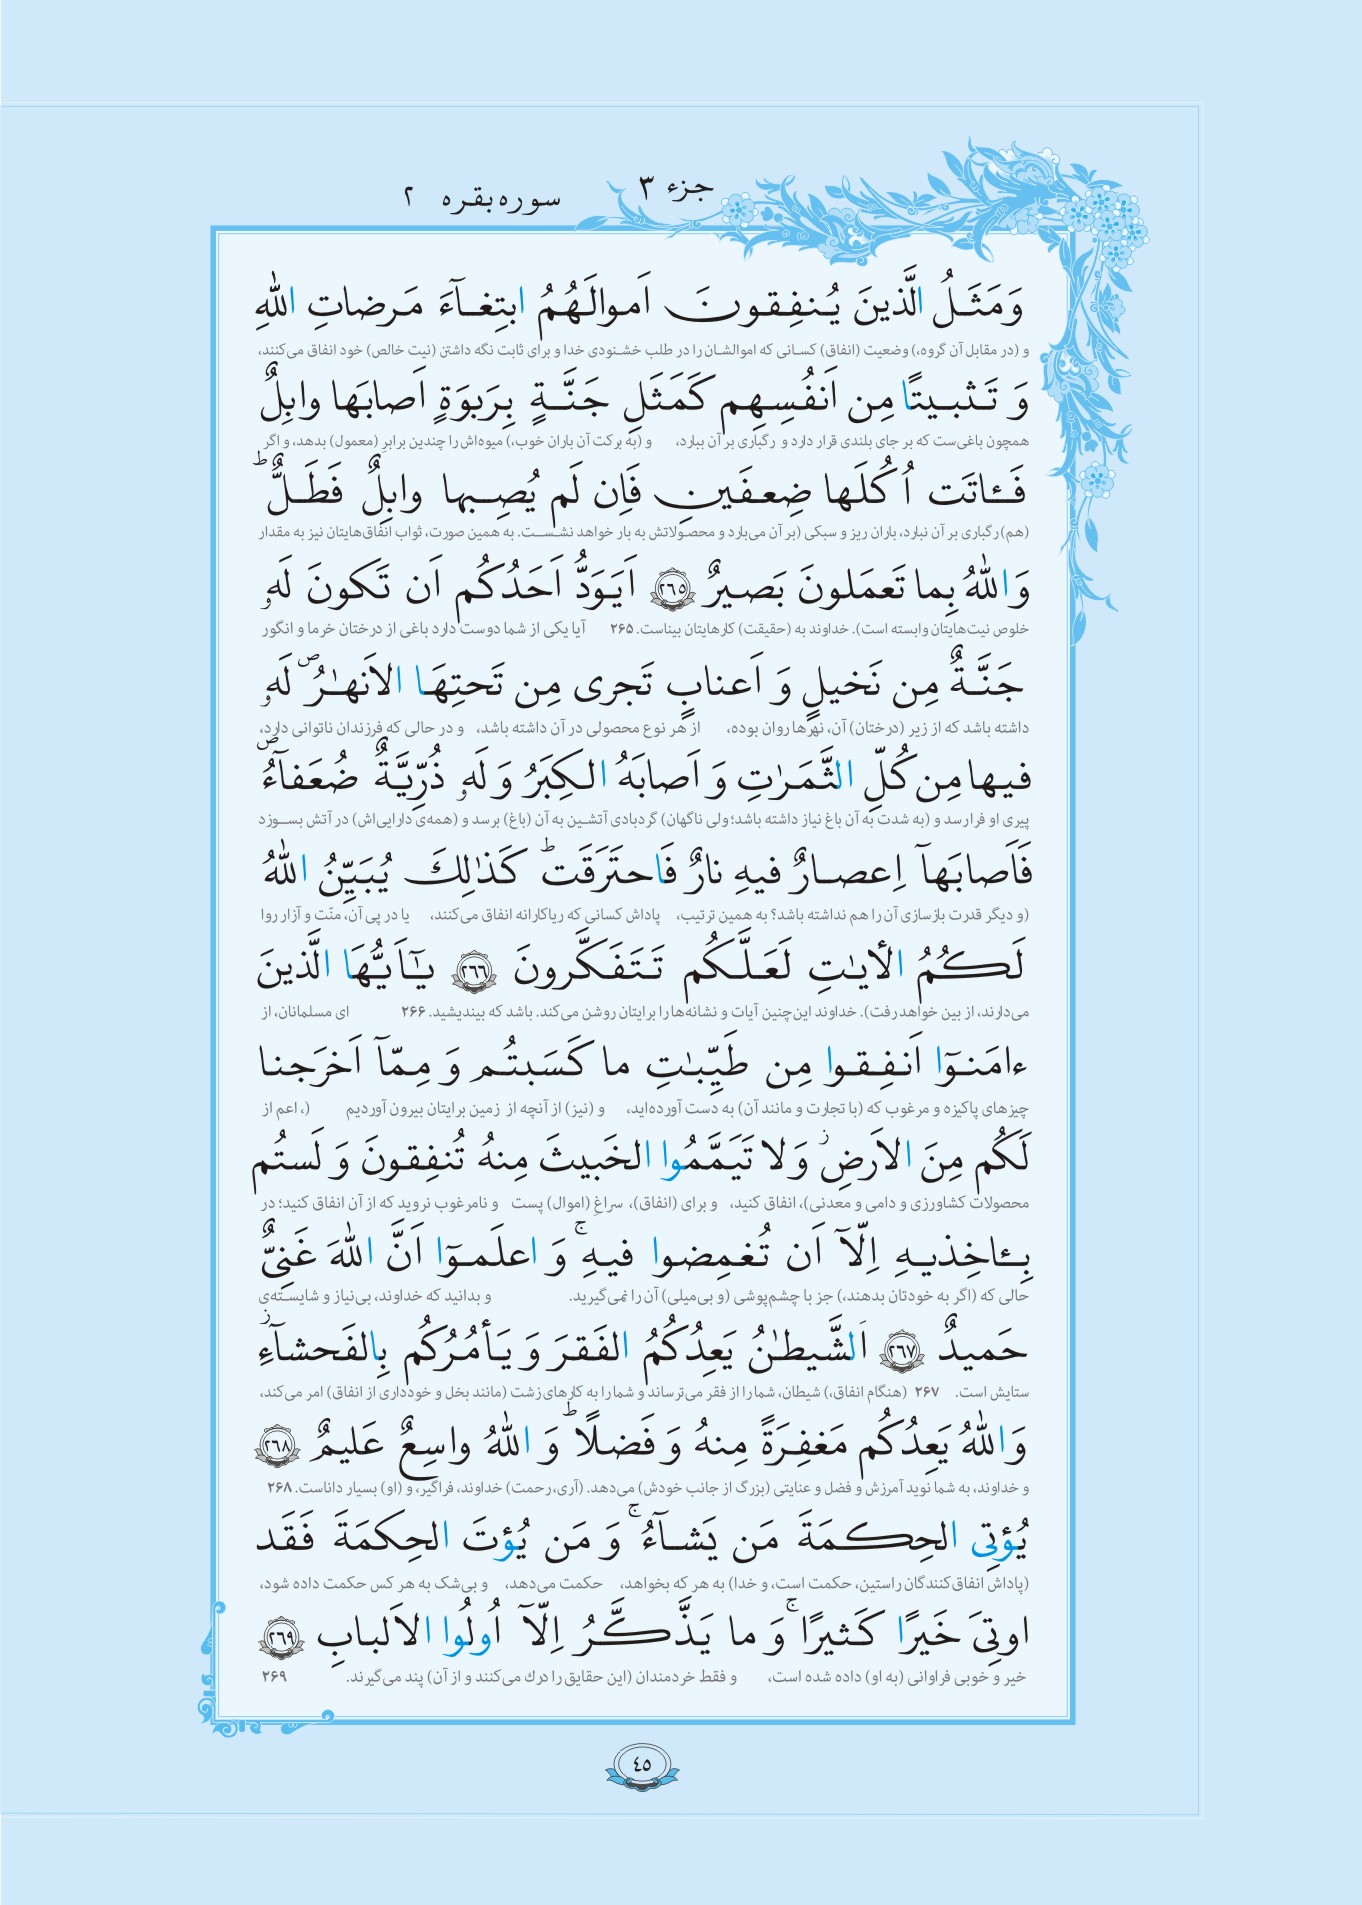 جزء ۳
سوره بقره ۲
وَمَثَلُ الَّذينَ يُنفِقونَ اَموالَهُمُ ابتِغآءَ مَرضاتِ اللّٰهِ
و (در مقابل آن گروه،) وضعیت (انفاق) کسانی که اموالشان را در طلب خشنودی خدا و برای ثابت نگه داشتن (نیت خالص) خود انفاق می‌کنند،
وَ تَثبيتًا مِن اَنفُسِهِم كَمَثَلِ جَنَّةٍ بِرَبوَةٍ اَصابَها وابِلٌ
همچون باغی‌ست که بر جای بلندی قرار دارد و رگباری بر آن ببارد، و (به برکت آن باران خوب،) میوه‌اش را چندین برابرِ (معمول) بدهد، و اگر
فَـٔاتَت اُكُلَها ضِعفَينِ فَاِن لَم يُصِبها وابِلٌ فَطَلٌّ ؕ
(هم) رگباری بر آن نبارد، باران ریز و سبکی (بر آن می‌بارد و محصولاتش به بار خواهد نشست. به همین صورت، ثواب انفاق‌هایتان نیز به مقدار
وَاللّٰهُ بِما تَعمَلونَ بَصيرٌ ﴿٢٦٥﴾ اَيَوَدُّ اَحَدُكُم اَن تَكونَ لَهٗ
خلوص نیت‌هایتان وابسته است). خداوند به (حقیقت) کارهایتان بیناست. ۲۶۵ آیا یکی از شما دوست دارد باغی از درختان خرما و انگور
جَنَّةٌ مِن نَخيلٍ وَ اَعنابٍ تَجرى مِن تَحتِهَا الاَنهٰرُ ۖ لَهٗ
داشته باشد که از زیر (درختان) آن، نهرها روان بوده، از هر نوع محصولی در آن داشته باشد، و در حالی که فرزندان ناتوانی دارد،
فيها مِن كُلِّ الثَّمَرٰتِ وَ اَصابَهُ الكِبَرُ وَ لَهٗ ذُرِّيَّةٌ ضُعَفآءُ ۖ
پیری او فرا رسد و (به شدت به آن باغ نیاز داشته باشد؛ ولی ناگهان) گردبادی آتشین به آن (باغ) برسد و (همه‌ی دارایی‌اش) در آتش بسوزد
فَاَصابَهآ اِعصارٌ فيهِ نارٌ فَاحتَرَقَت ؕ كَذٰلِكَ يُبَيِّنُ اللّٰهُ
(و دیگر قدرت بازسازی آن را هم نداشته باشد؟ به همین ترتیب، پاداش کسانی که ریاکارانه انفاق می‌کنند، یا در پی آن، منّت و آزار روا
لَكُمُ الأيٰتِ لَعَلَّكُم تَتَفَكَّرونَ ﴿٢٦٦﴾ يٰٓاَيُّهَا الَّذينَ
می‌دارند، از بین خواهد رفت). خداوند این‌چنین آیات و نشانه‌ها را برایتان روشن می‌کند. باشد که بیندیشید. ۲۶۶ ای مسلمانان، از
ءامَنوٓا اَنفِقوا مِن طَيِّبٰتِ ما كَسَبتُم وَ مِمّآ اَخرَجنا
چیزهای پاکیزه و مرغوب که (با تجارت و مانند آن) به دست آورده‌اید، و (نیز) از آنچه از زمین برایتان بیرون آوردیم (، اعم از
لَكُم مِنَ الاَرضِ ؗ وَلا تَيَمَّمُوا الخَبيثَ مِنهُ تُنفِقونَ وَ لَستُم
محصولات کشاورزی و دامی و معدنی)، انفاق کنید، و برای (انفاق)، سراغِ (اموال) پست و نامرغوب نروید که از آن انفاق کنید؛ در
بِـٔاخِذيهِ اِلّآ اَن تُغمِضوا فيهِ ۚ وَ اعلَموٓا اَنَّ اللّٰهَ غَنِيٌّ
حالی که (اگر به خودتان بدهند،) جز با چشم‌پوشی (و بی‌میلی) آن را نمی‌گیرید. و بدانید که خداوند، بی‌نیاز و شایسته‌ی
حَميدٌ ﴿٢٦٧﴾ اَلشَّيطٰنُ يَعِدُكُمُ الفَقرَ وَ يَأمُرُكُم بِالفَحشآءِ ؗ
ستایش است. ۲۶۷ (هنگام انفاق،) شیطان، شما را از فقر می‌ترساند و شما را به کارهای زشت (مانند بخل و خودداری از انفاق) امر می‌کند،
وَاللّٰهُ يَعِدُكُم مَغفِرَةً مِنهُ وَ فَضلًا ؕ وَ اللّٰهُ واسِعٌ عَليمٌ ﴿٢٦٨﴾
و خداوند، به شما نوید آمرزش و فضل و عنایتی (بزرگ از جانب خودش) می‌دهد. (آری، رحمت) خداوند، فراگیر، و (او) بسیار داناست. ۲۶۸
يُؤتِى الحِكمَةَ مَن يَشآءُ ۚ وَ مَن يُؤتَ الحِكمَةَ فَقَد
(پاداش انفاق‌کنندگان راستین، حکمت است، و خدا) به هر که بخواهد، حکمت می‌دهد، و بی‌شک به هر کس حکمت داده شود،
اوتِىَ خَيرًا كَثيرًا ۚ وَ ما يَذَّكَّرُ اِلّآ اُولُوا الاَلبابِ ﴿٢٦٩﴾
خیر و خوبی فراوانی (به او) داده شده است، و فقط خردمندان (این حقایق را درک می‌کنند و از آن) پند می‌گیرند. ۲۶۹
٤٥